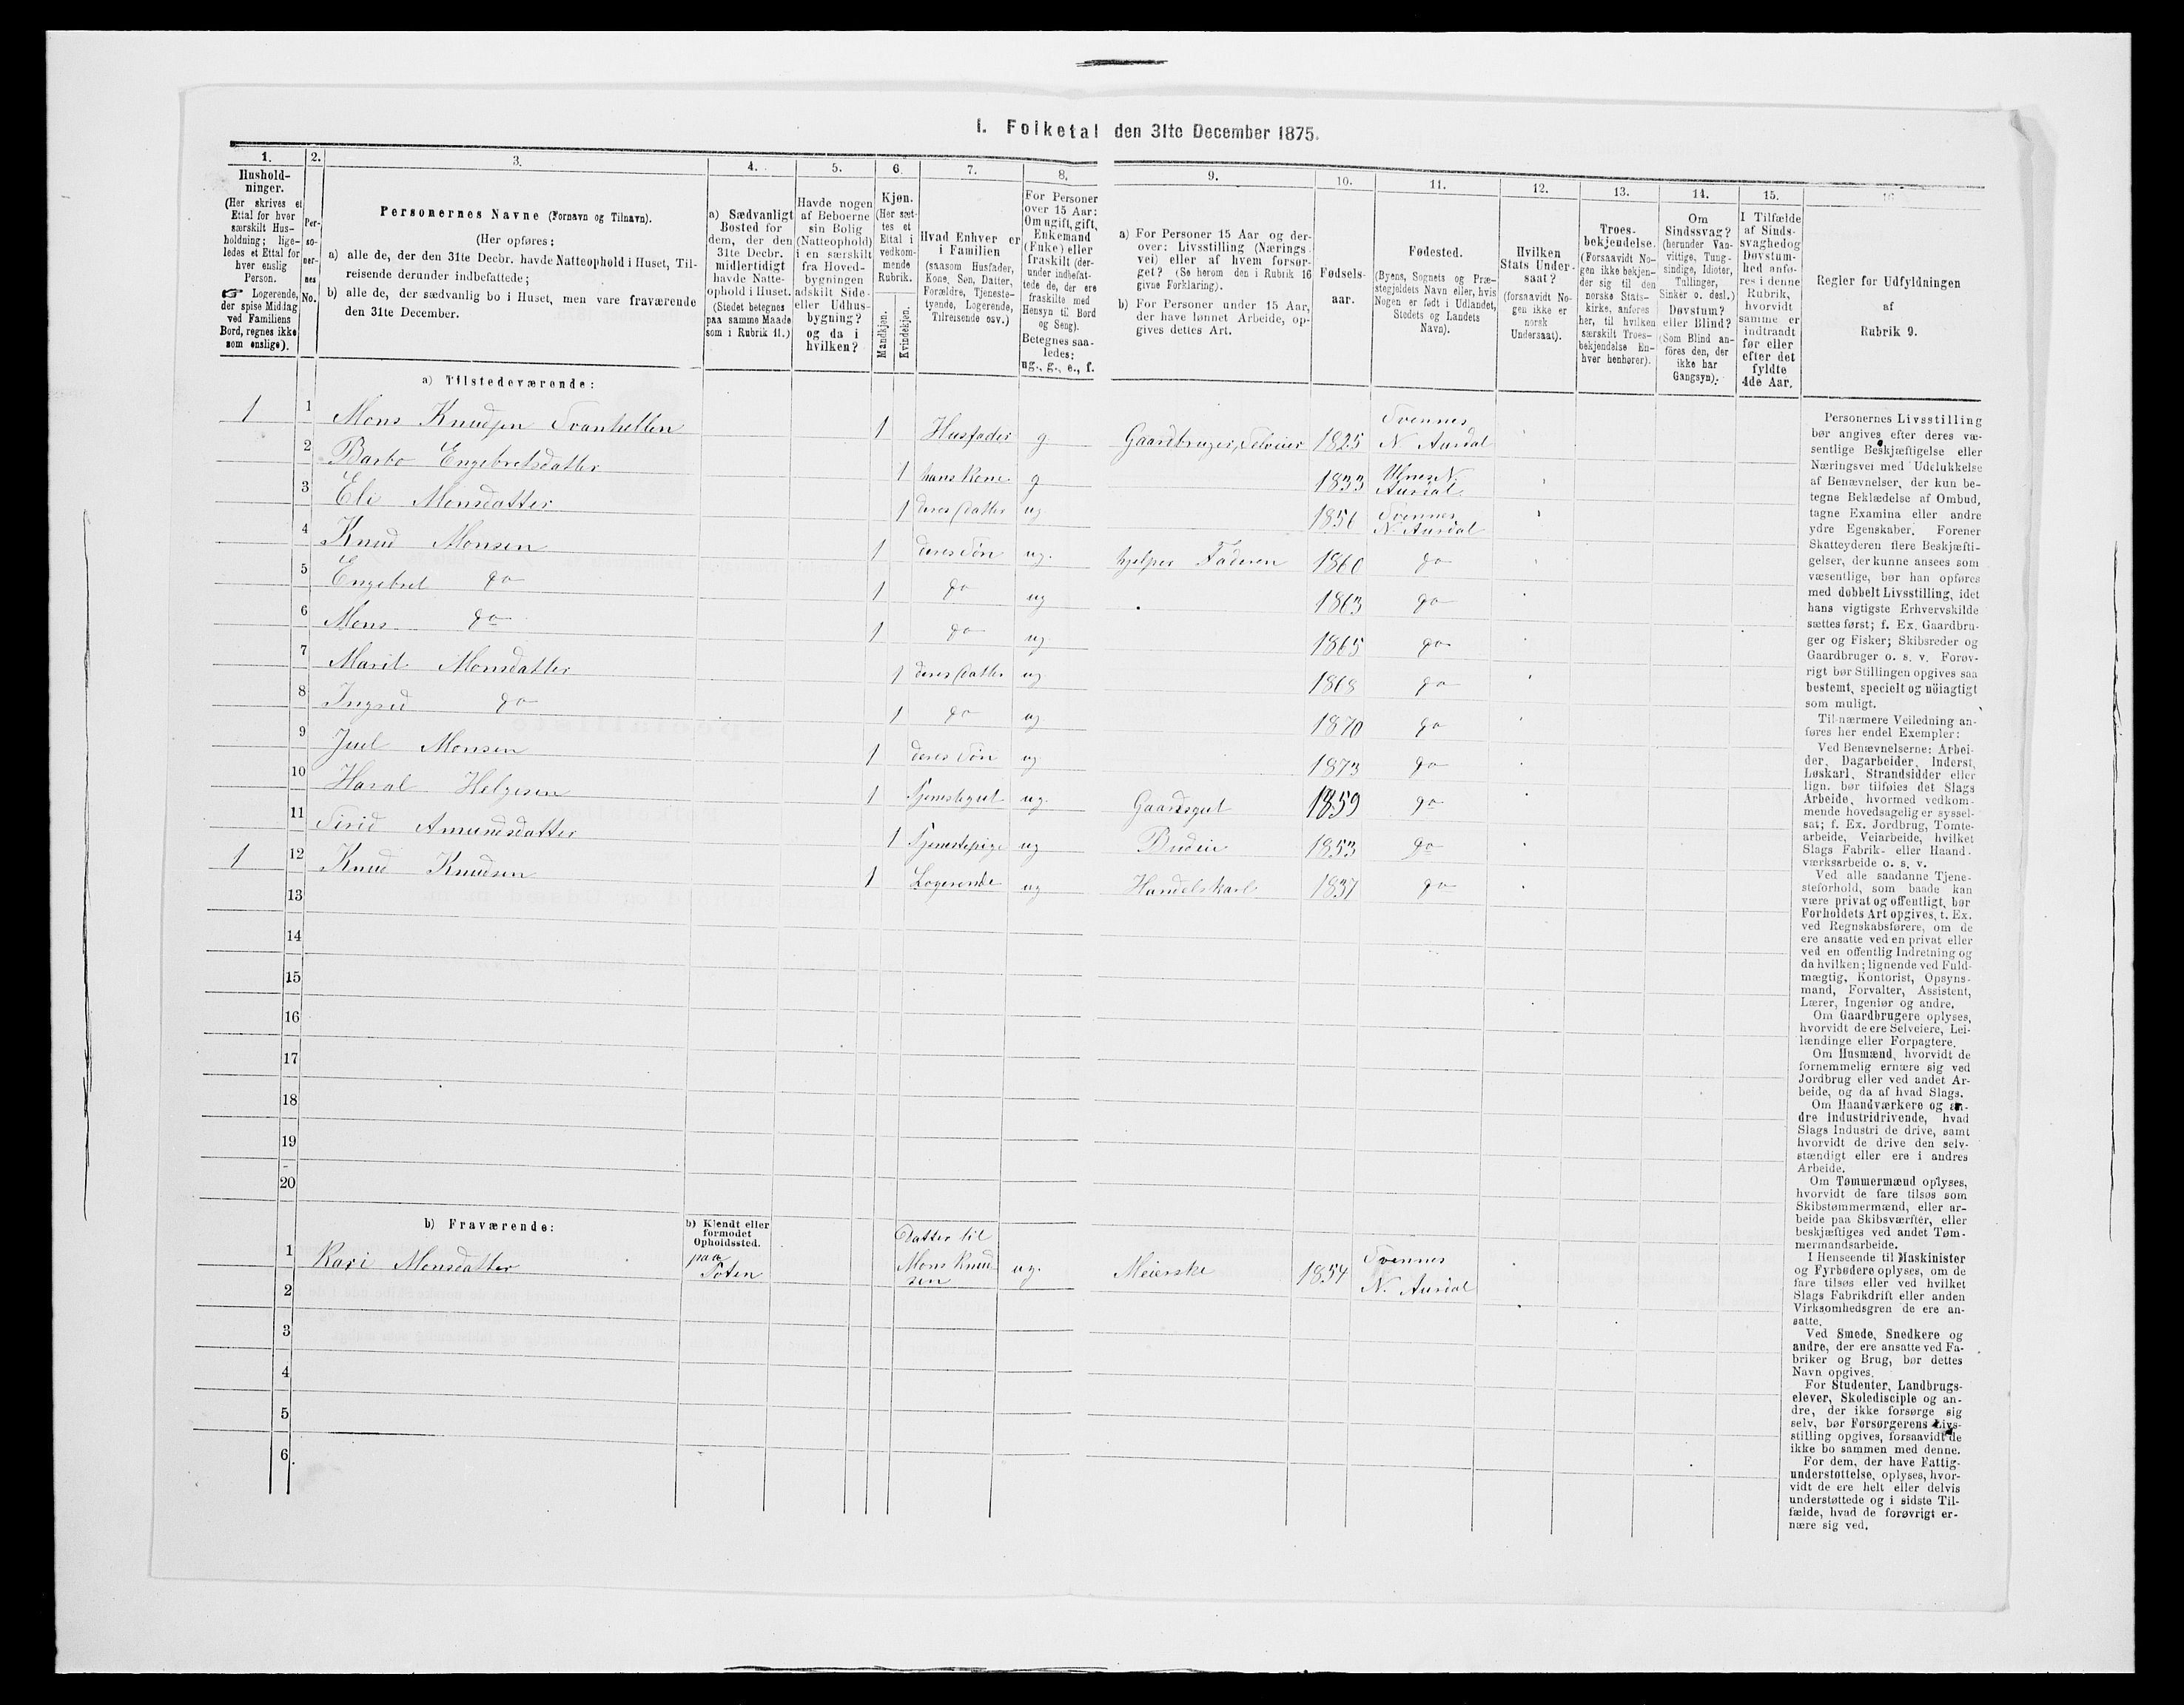 I. Folketal den 31te December 1875.
1. 2. 3. 4. 5. 6. 7. 8. 9. 10. 11. 12. 13. 14. 15. 16.
Hushold-
ninger.
(Her skrives et
Ettal for hver
særskilt Hus-
holdning; lige-
ledes et Ettal for
hver enslig
Person.
☞ Logerende,
der spise Middag
ved Familiens
Bord, regnes ikke
som enslige).
Per-
so-
ner-
nes
No.
Personernes Navne (Fornavn og Tilnavn).
(Her opføres:
a) alle de, der den 31te Decbr. havde Natteophold i Huset, Til-
reisende derunder indbefattede;
b) alle de, der sædvanlig bo i Huset, men vare fraværende
den 31te December.
a) Sædvanligt
Bosted for
dem, der den
31te Decbr.
midlertidigt
havde Natte-
ophold i Huset.
(Stedet betegnes
paa samme Maade
som i Rubrik 11.)
Havde nogen
af Beboerne
sin Bolig
(Natteophold)
i en særskilt
fra Hoved-
bygningen
adskilt Side-
eller Udhus-
bygning?
og da i
hvilken?
Kjøn.
(Her sæt-
tes et
Ettal i
vedkom-
mende
Rubrik.
Mandkjøn.
Kvindekjøn.
Hvad Enhver er
i Familien
(saasom Husfader,
Kone, Søn, Datter,
Forældre, Tjeneste-
tyende, Logerende,
Tilreisende osv.)
For Personer
over 15 Aar:
Om ugift, gift,
Enkemand
(Enke) eller
fraskilt (der-
under indbefat-
tede de, der ere
fraskilte med
Hensyn til Bord
og Seng).
Betegnes saa-
ledes:
ug., g., e., f.
a) For Personer 15 Aar og der-
over: Livsstilling (Nærings-
vei) eller af hvem forsør-
get? (Se herom den i Rubrik 16
givne Forklaring).
b) For Personer under 15 Aar,
der have lønnet Arbeide, op-
gives dettes Art.
Fødsels-
aar.
Fødested.
(Byens, Sognets og Præ-
stegjeldets Navn eller, hvis
Nogen er født i Udlandet,
Stedets og Landets
Navn).
Hvilken
Stats Under-
saat?
(forsaavidt No-
gen ikke er
norsk
Undersaat).
Troes-
bekjendelse.
(Forsaavidt No-
gen ikke bekjen-
der sig til den
norske Stats-
kirke, anføres
her, til hvilken
særskilt Troes-
bekjendelse En-
hver henhører).
Om
Sindssvag?
(herunder Van-
vittige, Tung-
sindige, Idioter,
Tallinger,
Sinker o. desl.)
Døvstum?
eller Blind?
(Som Blind an-
føres den, der
ikke har
Gangsyn).
I Tilfælde
af Sinds-
svaghed og
Døvstum-
hed anfø-
res i denne
Rubrik,
hvorvidt
samme er
indtraadt
før eller
efter det
fyldte
4de Aar.
Regler for Udfyldningen
af
Rubrik 9.
a) Tilstedeværende:
1 1 Mons Knudsen Svanhellen 1 Husfader g Gaardbruger, Selveier 1825 Svennes N. Aurdal
2 Barbo Engebretsdatter 1 hans Kone g 1833 Ulnes N. Aurdal
3 Eli Monsdatter 1 deres Datter ug 1856 Svennes N. Aurdal
4 Knud Monsen 1 deres Søn ug. hjelper Faderen 1860 do
5 Engebret do 1 do ug 1863 do
6 Mons do 1 do ug 1865 do
7 Marit Monsdatter 1 deres Datter ug 1868 do
8 Ingrid do 1 do ug 1870 do
9 Juul Monsen 1 deres Søn ug 1873 do
10 Haral Helgesen 1 Tjenestegut ug. Gaardsgut 1859 do
11 Sirid Amundsdatter 1 Tjenestepige ug Budeie 1853 do
1 12 Knud Knudsen 1 Logerende ug Handelskarl 1837 do
13
14
15
16
17
18
19
20
b) Fraværende:
b) Kjendt eller
formodet
Opholdssted.
1 Kari Monsdatter paa Toten Datter til Mons Knudsen ug. Meierske 1854 Svennes N. Aurdal
2
3
4
5
6.
Personernes Livsstilling
bør angives efter deres væ-
sentlige Beskjæftigelse eller
Næringsvei med Udelukkelse
af Benævnelser, der kun be-
tegne Beklædelse af Ombud,
tagne Examina eller andre
ydre Egenskaber. Forener
Skatteyderen flere Beskjæfti-
gelser, der kunne ansees som
væsentlige, bør han opføres
med dobbelt Livsstilling, idet
hans vigtigste Erhvervskilde
sættes først; f. Ex. Gaardbru-
ger og Fisker; Skibsreder og
Gaardbruger o. s. v. Forøv-
rigt bør Stillingen opgives saa
bestemt, specielt og nøiagtigt
som muligt.
Til nærmere Veiledning an-
føres her endel Exempler:
Ved Benævnelserne: Arbei-
der, Dagarbeider, Inderst,
Løskarl, Strandsidder eller
lign. bør tilføies det Slags
Arbeide, hvormed vedkom-
mende hovedsagelig er syssel-
sat; f. Ex. Jordbrug, Tomte-
arbeide, Veiarbeide, hvilket
Slags Fabrik- eller Haand-
værksarbeide o. s. v.
Ved alle saadanne Tjene-
steforhold, som baade kan
være privat og offentligt, bør
Forholdets Art opgives, t. Ex.
ved Regnskabsførere, om de
ere ansatte ved en privat eller
ved en offentlig Indretning og
da hvilken; lignende ved Fuld-
mægtig, Kontorist, Opsyns-
mand, Forvalter, Assistent,
Lærer, Ingeniør og andre.
Om Gaardbrugere oplyses,
hvorvidt de ere Selveiere, Lei-
lændinge eller Forpagtere.
Om Husmænd, hvorvidt de
fornemmelig ernære sig ved
Jordbrug eller ved andet Ar-
beide, og da af hvad Slags.
Om Haandværkere og an-
dre Industridrivende, hvad
Slags Industri de drive, samt
hvorvidt de drive den selv-
stændigt eller ere i andres
Arbeide.
Om Tømmermænd oplyses,
hvorvidt de fare tilsøs som
Skibstømmermænd, eller ar-
beide paa Skibsværfter, eller
beskjæftiges ved andet Tøm-
mermandsarbeide.
I Henseende til Maskinister
og Fyrbødere oplyses, om de
fare tilsøs eller ved hvilket
Slags Fabrikdrift eller anden
Virksomhedsgren de ere an-
satte.
Ved Smede, Snedkere og
andre, der ere ansatte ved Fa-
briker og Brug, bør dettes
Navn opgives.
For Studenter, Landbrugs-
elever, Skoledisciple og an-
dre, der ikke forsørge sig
selv, bør Forsørgerens Livs-
stilling opgives, forsaavidt de
ikke bo sammen med denne.
For dem, der have Fattig-
understøttelse, oplyses, hvor-
vidt de ere helt eller delvis
understøttede og i sidste Til-
fælde, hvad de forøvrigt er-
nære sig ved.